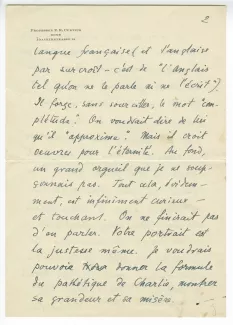 2
PROFESSOR E. R. CURTIUS
BONN
langue française (et l'anglaise
par surcroît – c'est de "l'Anglais
tel qu'on ne le parle ni ne l'écrit").
Il forge, sans sourciller, le mot "com-
plétude". On voudrait dire de lui
qu'il "approxime." Mais il croit
œuvrer pour l'éternité. Au fond,
un grand orgueil que je ne soup-
çonnais pas. Tout cela, évidem-
ment, est infiniment curieux –
et touchant. On ne finirait pas
d'en parler. Votre portrait est
la justesse même. Je voudrais
pouvoir donner la formule
du pathétique de Charlie, montrer
sa grandeur et sa misère.